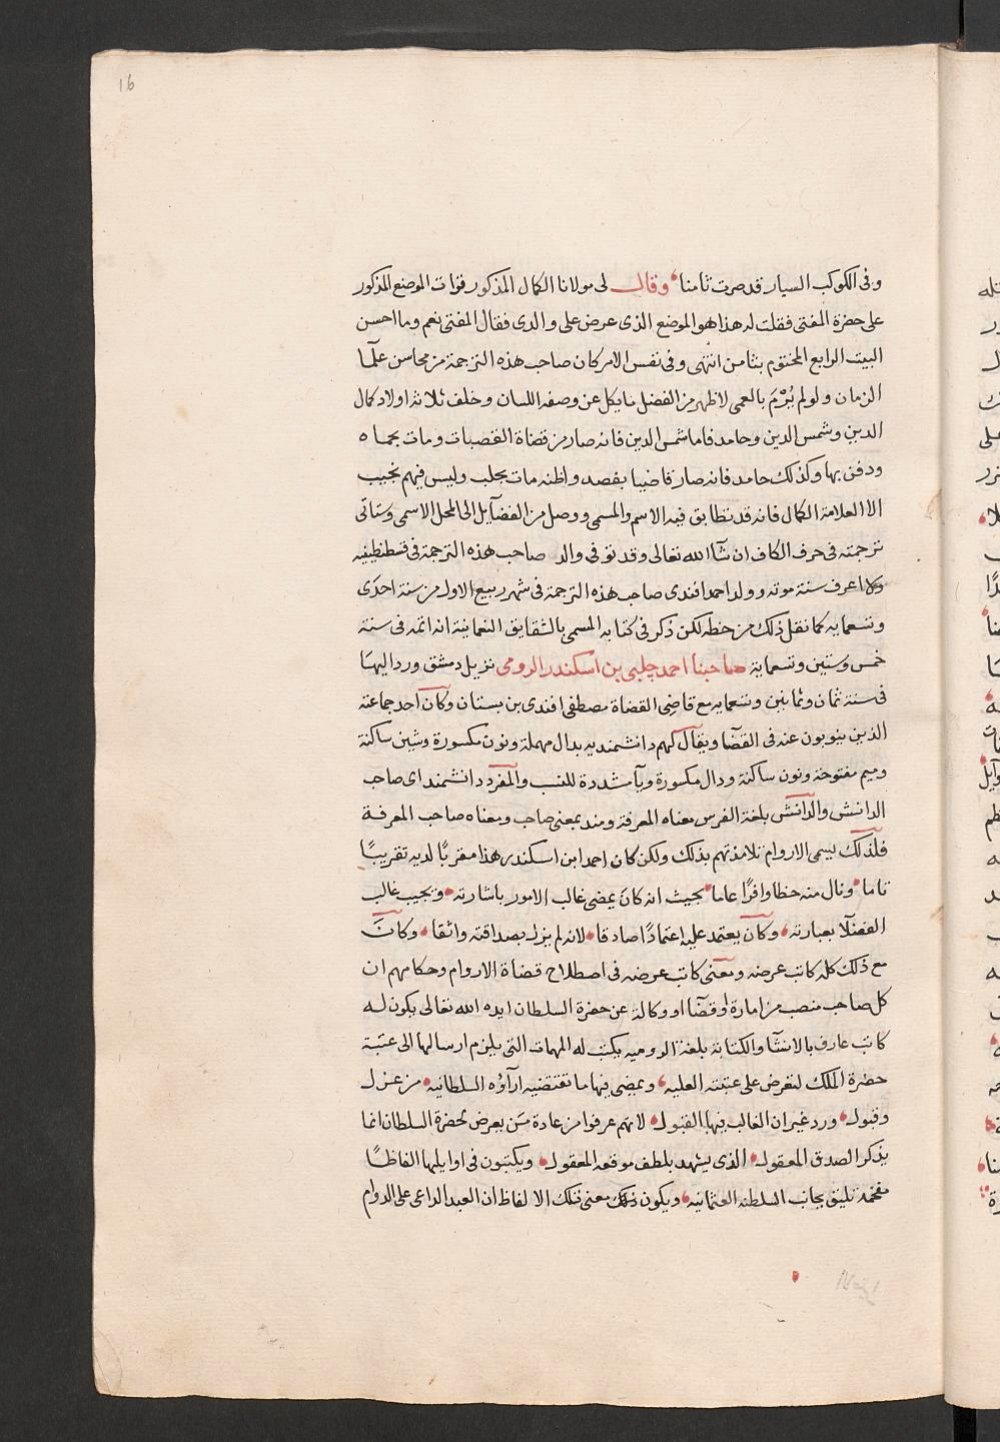 16
وفى الكوكب السيار قد صرت ثامنا وقال لى مولانا الكمال المذكور قرات الموضع المذكور
على حضرة المفتى فقلت له هذا هو الموضع الذى عرض على والدى فقال المفتى نعم وما احسن
البيت الرابع المختوم بثامن انتهى وفى نفس الامر كان صاحب هذه الترجمة من محاسن علما
الزمان ولو لم يُرْمَ بالعمى لاظهر من الفضل ما يكل عن وصفه اللسان وخلف ثلاثة اولاد كمال
الدين وشمس الدين وحامد فاما شمس الدين فانه صار من قضاة القصبات ومات بحماه
ودفن بها وكذلك حامد فانه صار قاضيا بقصبه واظنه مات بحلب وليس فيهم نجيب
الا العلامة الكمال فانه قد تطابق فيه الاسم والمسمى ووصل من الفضآيل الى المحل الاسمى وستاتى
ترجمته فى حرف الكاف ان شآ الله تعالى وقد توفى والد صاحب هذه الترجمة فى قسطنطينيه
ولا اعرف سنة موته وولد احمد افندى صاحب هذه الترجمة فى شهر ربيع الاول من سنة احدى
وتسعمايه كما نقل ذلك من خطه لكن ذكر فى كتابه المسمى بالشقايق النعمانية انه اتمه فى سنة
خمس وستين وتسعماية صاحبنا احمد چلبى بن اسكندر الرومى نزيل دمشق ورد اليها
فى سنة ثمان وثمانين وتسعمايه مع قاضى القضاة مصطفى افندى بن بستان وكان احد جماعته
الذين ينوبون عنه فى القضا ويقال لهم دانشمنديه بدال مهملة ونون مكسورة وشين ساكنة
وميم مفتوحة ونون ساكنة ودال مكسورة ويآ مشددة للنسب والمفرد دانشمند اى صاحب
الدانش والدانش بلغة الفرس معناه المعرفة ومند بمعنى صاحب ومعناه صاحب المعرفة
فلذلك يسمى الاروام تلامذتهم بذلك ولكن كان احمد ابن اسكندر هذا مقربًا لديه تقريبًا
تاما ونال منه حظا وافرًا عاما بحيث انه كان يمضى غالب الامور باشارته ويجيب غالب
الفضلآ بعبارته وكان يعتمد عليه اعتمادًا صادقا لانه لم يزل بصداقته واثقا وكانَ
مع ذلك كله كاتب عرضه ومعنى كاتب عرضه فى اصطلاح قضاة الاروام وحكامهم ان
كل صاحب منصب من امارة او قضآ او وكالة عن حضرة السلطان ايده الله تعالى يكون له
كاتب عارف بالانشآ والكتابة بلغة الروميه يكتب له المهمات التى يلزم ارسالها الى عتبة
حضرة الملك لتعرض على عتبته العليه ويمضى فيها ما تقتضيه ارآؤه السلطانيه من عزل
وقبول ورد غير ان الغالب فيها القبول لانهم عرفوا من عادة من يعرض لحضرة السلطان انما
يذكر الصدق المعقول الذى يشهد بلطف موقعه المعقول ويكتبون فى اوايلها الفاظًا
مفخمة تليق بجانب السلطنة العثمانيه ويكون ذلك معنى تلك الالفاظ ان العبد الداعى على الدوام